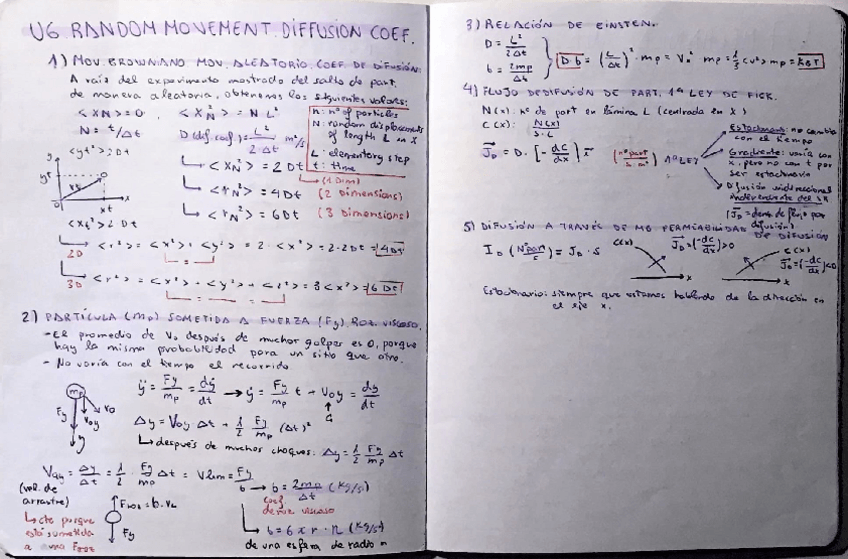 U6 RANDOM MOVEMENT. DIFFUSION COEF.
1) MOV. BROWNIANO MOV. ALEATORIO. COEF DE DIFUSIÓN.
A raíz del experimento mostrado del salto de part.
de manera aleatoria, obtenemos los siguientes valores:
<XN> = 0 <XN²> = N L²
N = t/Δt D (dif. coef.) = L²/2Δt m²/s
n: nº of particles
N: random displacements
of length L in X
L: elementary step
t: time
<yt²> = 2Dt
<XN²> = 2Dt (1 Dim)
<rN²> = 4Dt (2 Dimensions)
<rN²> = 6Dt (3 Dimensions)
<xt²> 2Dt
2D <r²> = <x²> + <y²> = 2·<x²> = 2·2Dt = 4Dt
3D <r²> = <x²> + <y²> + <z²> = 3<x²> = 6Dt
2) PARTÍCULA (mp) SOMETIDA A FUERZA (Fy) ROZ. VISCOSO.
- El promedio de Vo después de muchos golpes es 0, porque
hay la misma probabilidad para un sitio que otro.
- No varía con el tiempo el recorrido
mp Fy Voy Vo y
ÿ = Fy/mp = dẏ/dt → ẏ = Fy/mp t + Voy = dy/dt
Δy = Voy·Δt + 1/2 Fy/mp (Δt)²
después de muchos choques: Δy = 1/2 Fy/mp Δt
Vay = Δy/Δt = 1/2 · Fy/mp Δt = Vlim = Fy/b → b = 2mp/Δt (Kg/s)
(vel. de
arrastre)
coef.
de roz viscoso
Froz = b·Va
Fy
cte porque
está sometida
a una Froz
b = 6 π r · η (Kg/s)
de una esfera de radio
3) RELACIÓN DE EINSTEN.
D = L²/2Δt
b = 2mp/Δt
D b = (L/Δt)² · mp = Vo² mp = 1/3 <v²> mp = KBT
4) FLUJO DE DIFUSIÓN DE PART. 1ª LEY DE FICK.
N(x): nº de part en lámina L (centrada en X)
C(x): N(x)/S·L
JD = D·[-dc/dx] i (nº part/s·m²) 1ª LEY
Estacionario: no cambia
con el tiempo
Gradiente: varía con
x, pero no con t por
ser estacionario
Difusión unidireccional
(JD = dens. de flujo por
difusión)
5) DIFUSIÓN A TRAVÉS DE MB PERMEABILIDAD DE DIFUSIÓN
ID (Nºpart/s) = JD · S
C(x) JD = (-dc/dx) > 0 x
C(x) JD = (-dc/dx) < 0 x
Estacionario: siempre que estamos hablando de la dirección en
el eje x.